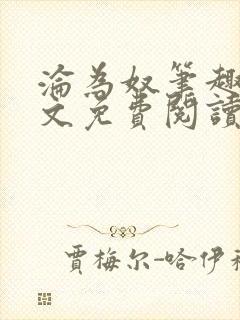 淪為奴筆趣
文免費閱讀
賈梅尔-哈伊